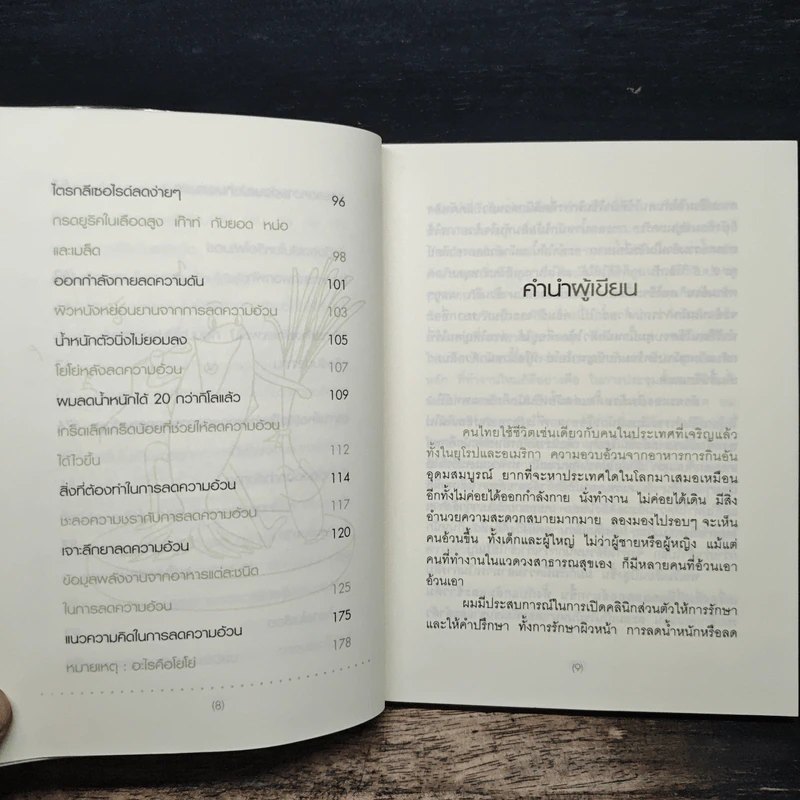 ไตรกลีเซอไรด์ลดง่ายๆ 96
กรดยูริคในเลือดสูง เก๊าท์ กับยอด หน่อ
และเมล็ด 98
ออกกำลังกายลดความดัน 101
ผิวหนังหย่อนยานจากการลดความอ้วน 103
น้ำหนักตัวนิ่งไม่ยอมลง 105
โยโย่หลังลดความอ้วน 107
ผมลดน้ำหนักได้ 20 กว่ากิโลแล้ว 109
เกร็ดเล็กเกร็ดน้อยที่ช่วยให้ลดความอ้วน
ได้ไวขึ้น 112
สิ่งที่ต้องทำในการลดความอ้วน 114
ชะลอความชรากับการลดความอ้วน 117
เจาะลึกยาลดความอ้วน 120
ข้อมูลพลังงานจากอาหารแต่ละชนิด
ในการลดความอ้วน 125
แนวความคิดในการลดความอ้วน 175
หมายเหตุ : อะไรคือโยโย่ 178
(8)
คำนำผู้เขียน
คนไทยใช้ชีวิตเช่นเดียวกับคนในประเทศที่เจริญแล้ว
ทั้งในยุโรปและอเมริกา ความอวบอ้วนจากอาหารการกินอัน
อุดมสมบูรณ์ ยากที่จะหาประเทศใดในโลกมาเสมอเหมือน
อีกทั้งไม่ค่อยได้ออกกำลังกาย นั่งทำงาน ไม่ค่อยได้เดิน มีสิ่ง
อำนวยความสะดวกสบายมากมาย ลองมองไปรอบๆ จะเห็น
คนอ้วนขึ้น ทั้งเด็กและผู้ใหญ่ ไม่ว่าผู้ชายหรือผู้หญิง แม้แต่
คนที่ทำงานในแวดวงสาธารณสุขเอง ก็มีหลายคนที่อ้วนเอา
อ้วนเอา
ผมมีประสบการณ์ในการเปิดคลินิกส่วนตัวให้การรักษา
และให้คำปรึกษา ทั้งการรักษาผิวหน้า การลดน้ำหนักหรือลด
(9)